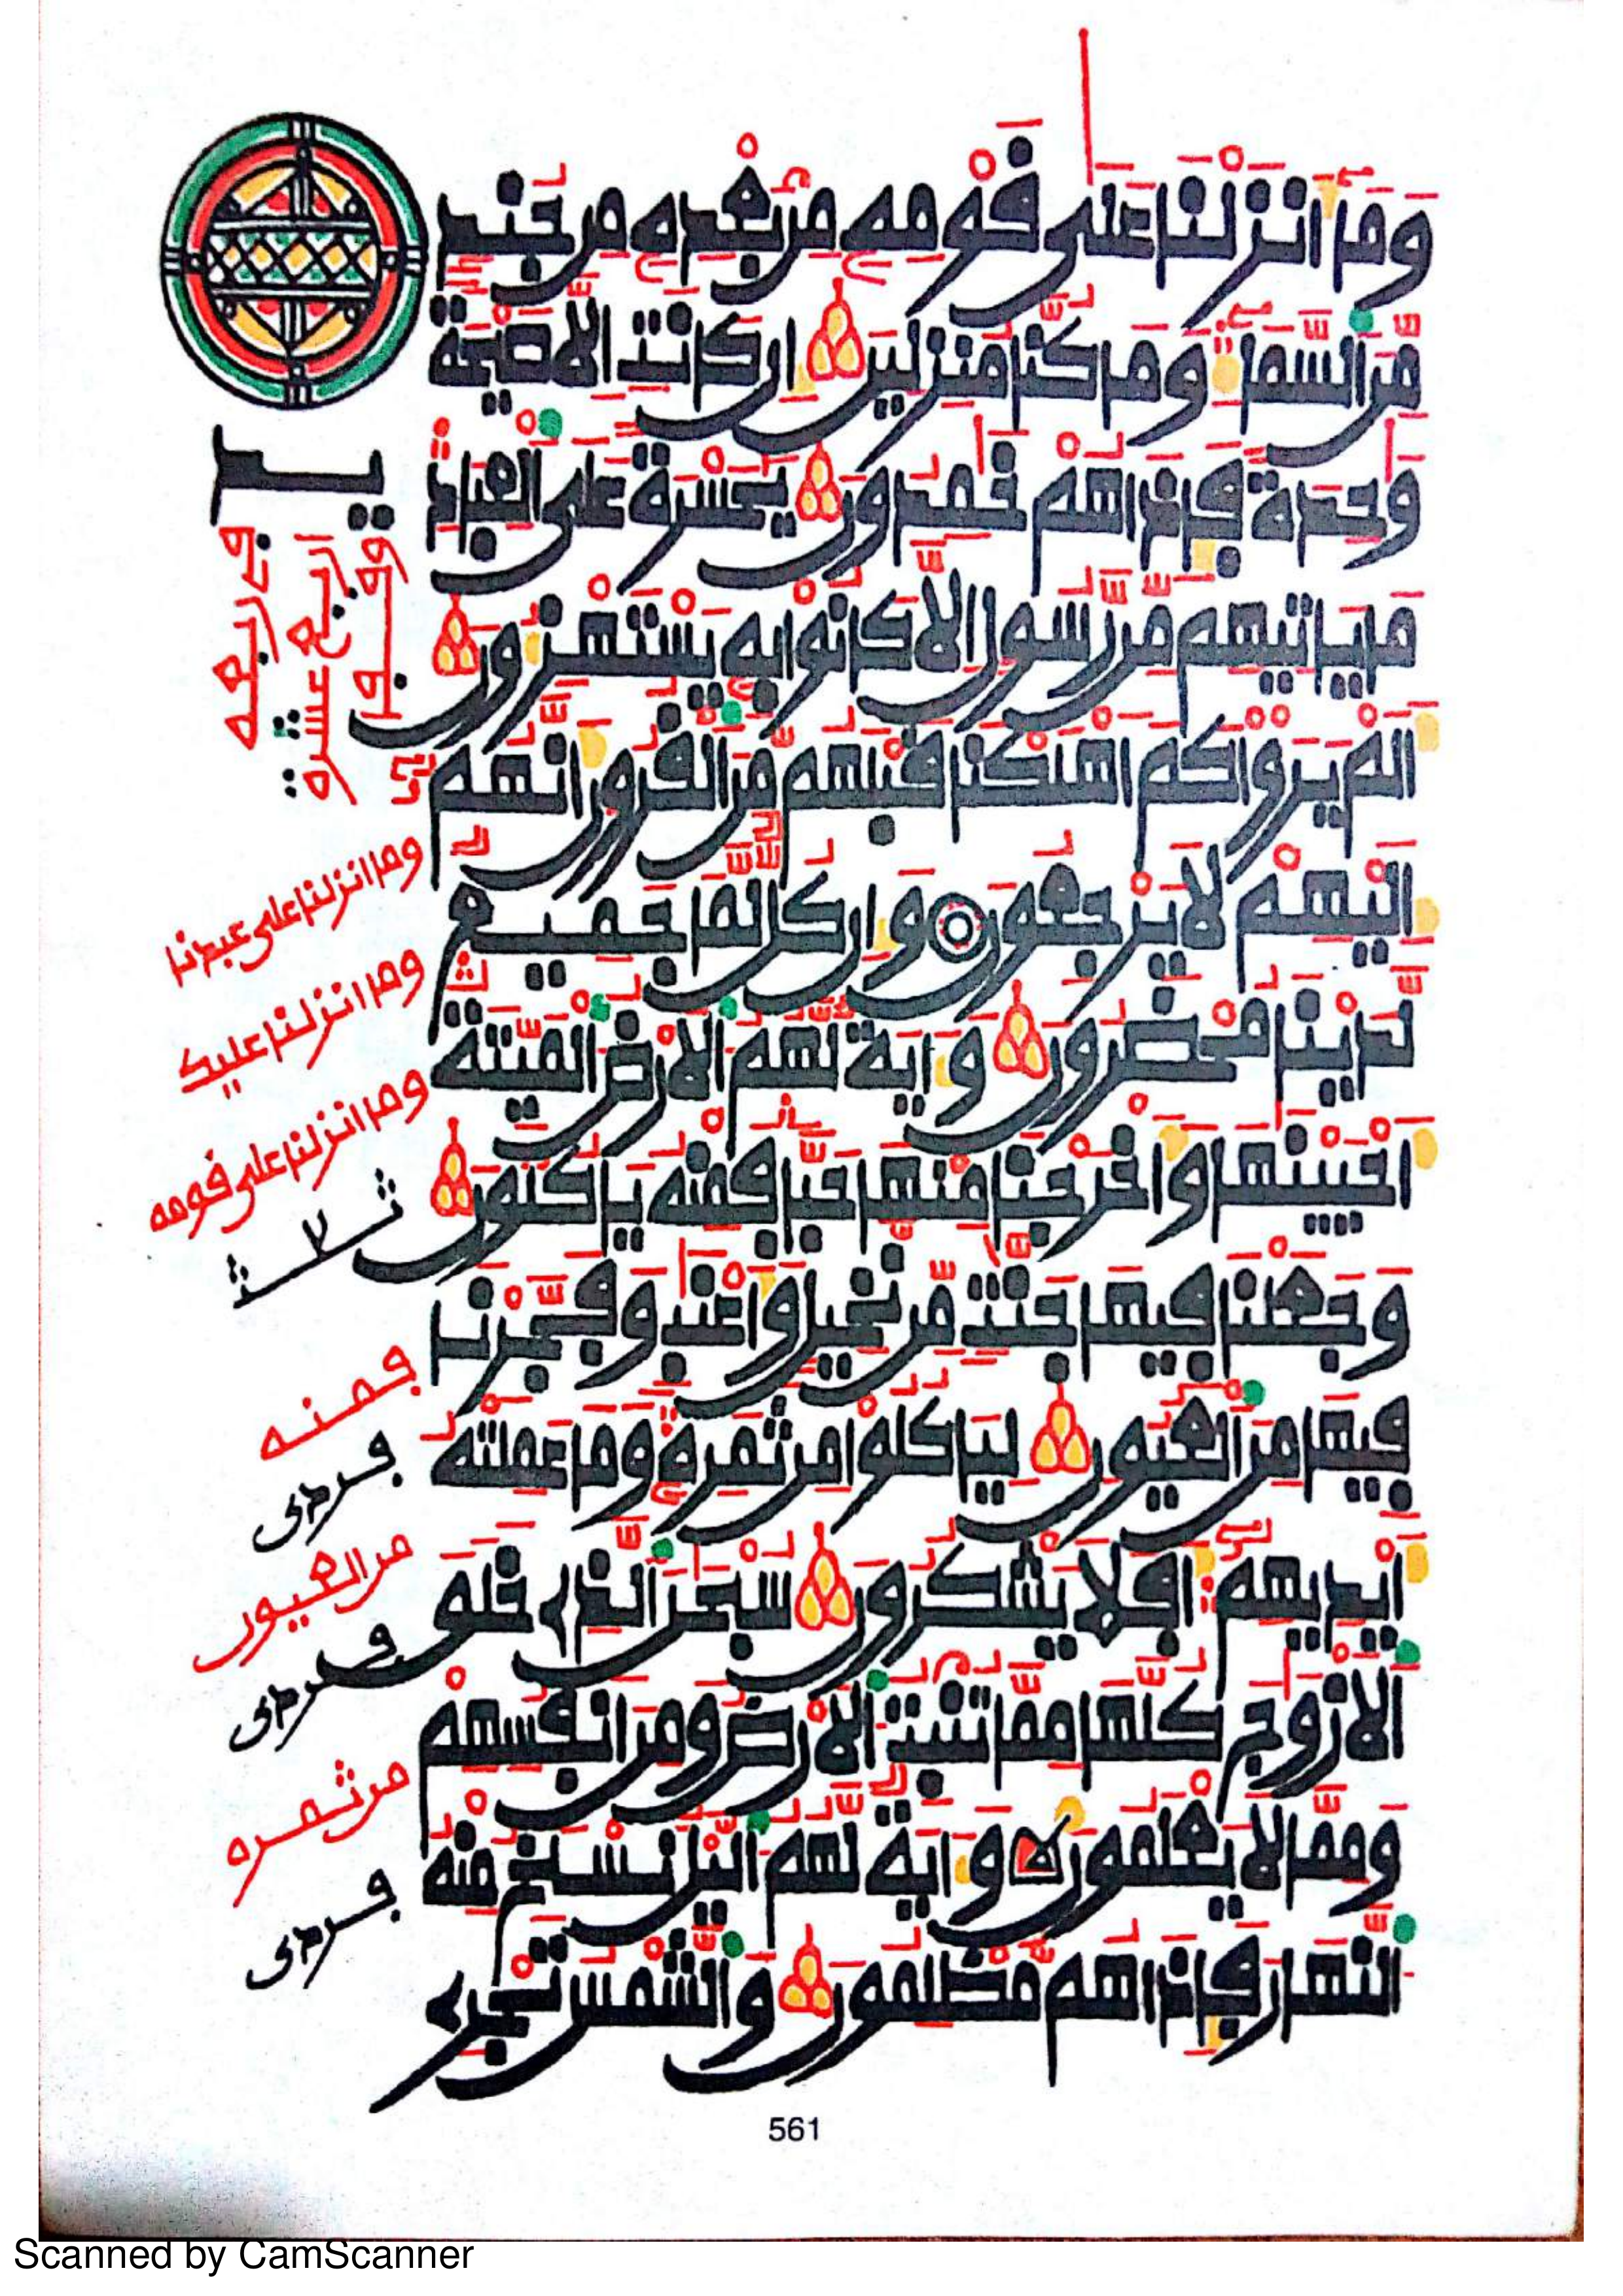 وما أنزلنا على قومه من بعده من جند
من السماء وما كنا منزلين إن كانت إلا صيحة
وحدة فإذا هم خمدون يحسرة على العباد
ما ياتيهم من رسول إلا كانوا به يستهزءون
ألم يروا كم أهلكنا قبلهم من القرون أنهم
إليهم لا يرجعون وإن كل لما جميع
لدينا محضرون وءاية لهم الارض الميتة
أحيينها وأخرجنا منها حبا فمنه ياكلون
وجعلنا فيها جنت من نخيل وأعنب وفجرنا
فيها من العيون لياكلوا من ثمره وما عملته
أيديهم أفلا يشكرون سبحن الذے خلق
الازوج كلها مما تنبت الارض ومن أنفسهم
ومما لا يعلمون وءاية لهم اليل نسلخ منه
النهار فإذا هم مظلمون والشمس تجرے
وما انزلنا على عبدنا
وما انزلنا عليك
وما انزلنا على قومه
فمنه
فردى
من العيون
فردى
من ثمره
فردى
561
Scanned by CamScanner